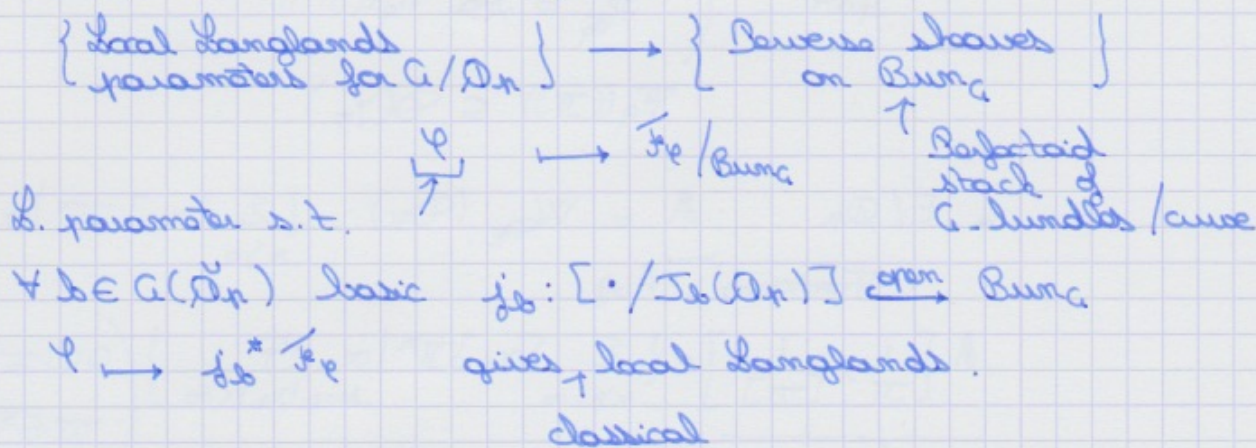 { Local Langlands parameters for G/Qp } → { Perverse sheaves on Bun_G }
φ ↦ F_φ / Bun_G
↑ Perfectoid stack of G-bundles / curve
L. parameter s.t.
∀ b ∈ G(Q̆p) basic j_b : [·/J_b(Qp)] open↪ Bun_G
φ ↦ j_b^* F_φ gives classical local Langlands.